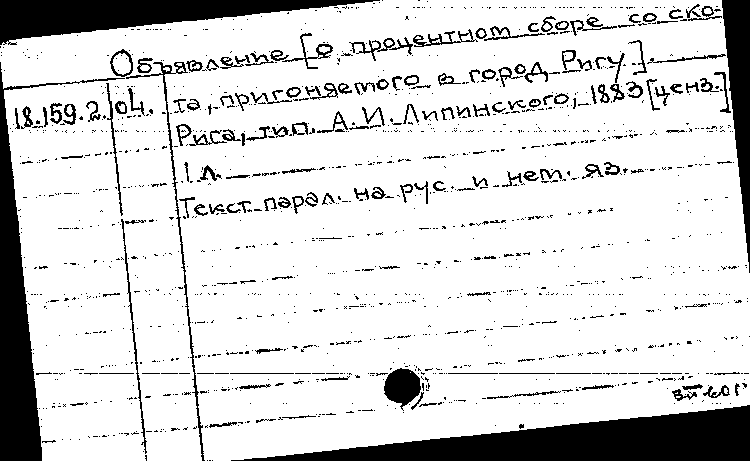 Объявление [о процентном сборе со ско-
18.159.2.104. та, пригоняемого в город Ригу].
Рига, тип. А.И.Липинского, 1883 [ценз.]
1 л.
Текст парал. на рус. и нем. яз.